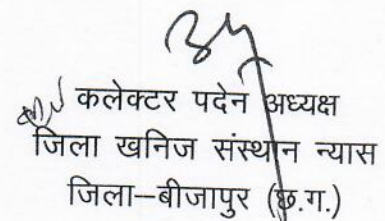 कलेक्टर पदेन अध्यक्ष
जिला खनिज संस्थान न्यास
जिला–बीजापुर (छ.ग.)